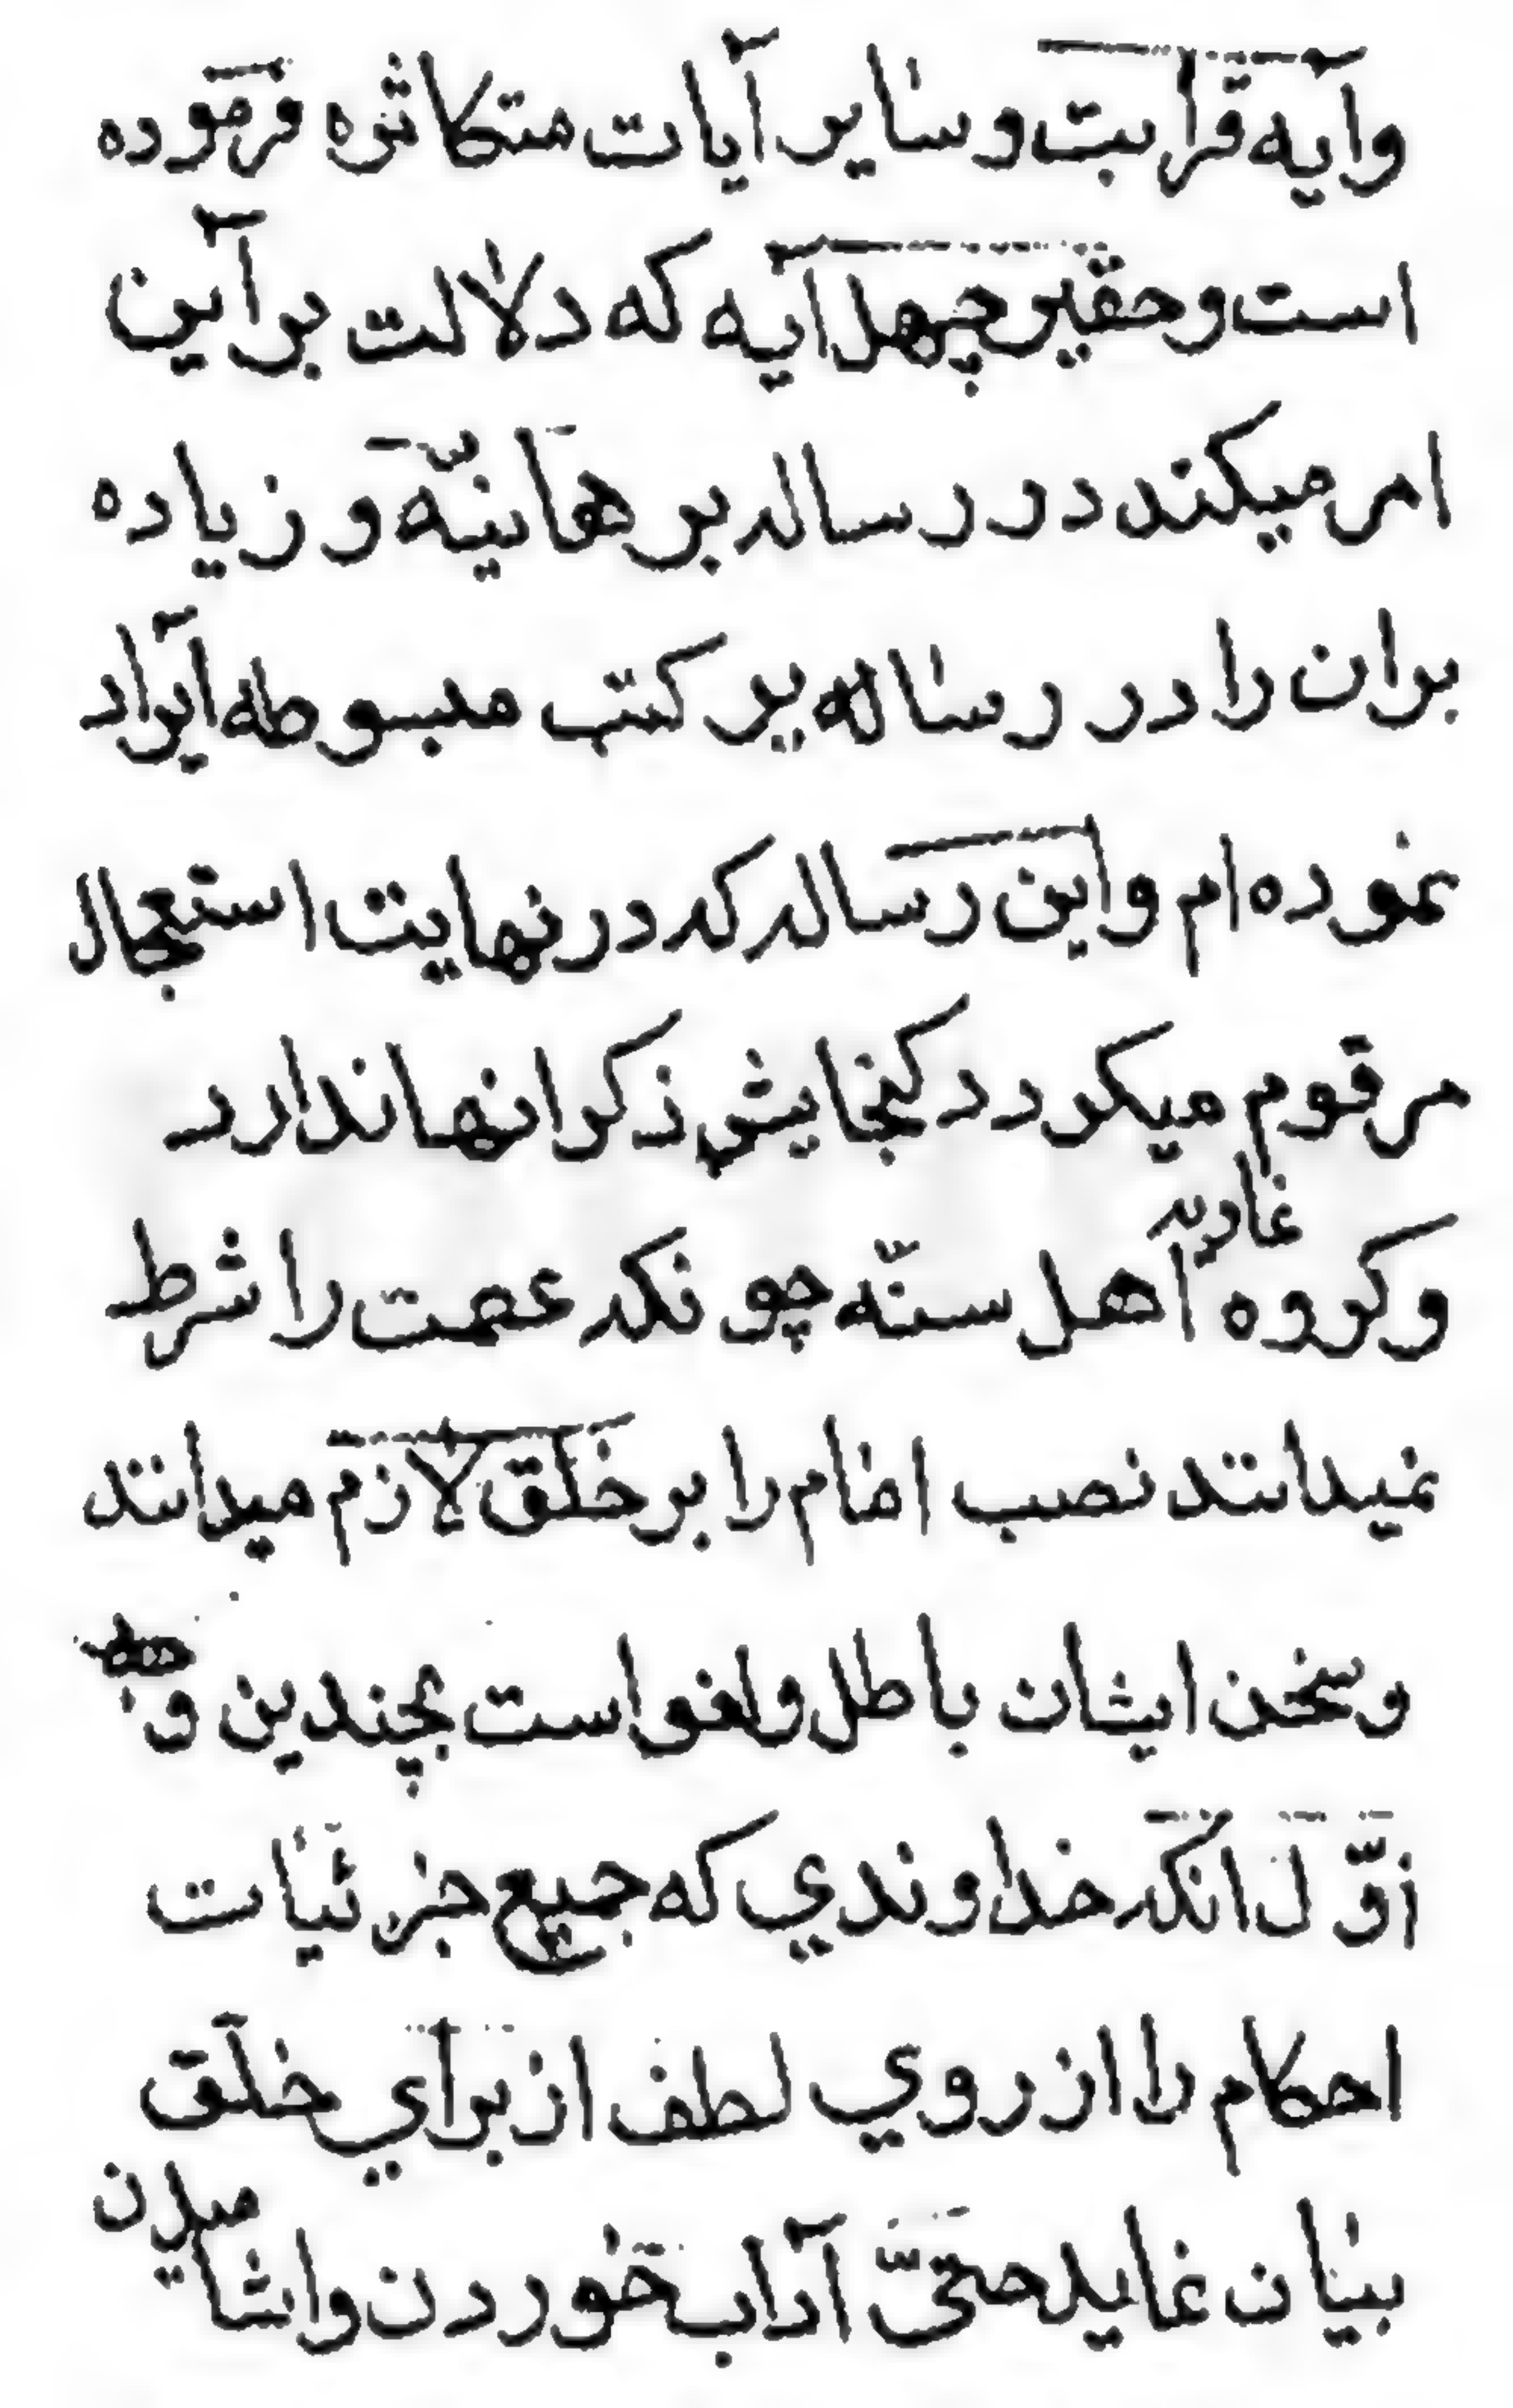 وآیه قرابت و سایر آیات متکاثره فرموده
است و حقیر چهل آیه که دلالت بر آین
امر میکند در رساله برهانیّه و زیاده
بران را در رساله یر کتب مبسوطه ایراد
نموده ام و این رساله که در نهایت استعجال
مرقوم میکردد کنجایش ذکر انها ندارد
وکروه غاویه اهل سنّه چونکه عصمت را شرط
نمیدانند نصب امام را بر خلق لازم میدانند
و سخن ایشان باطل و لغو است بچندین وجه
اوّل انکه خداوندي که جمیع جزئیات
احکام را از روي لطف از براي خلق
بیان نماید حتیّ آداب خوردن و اشامیدن